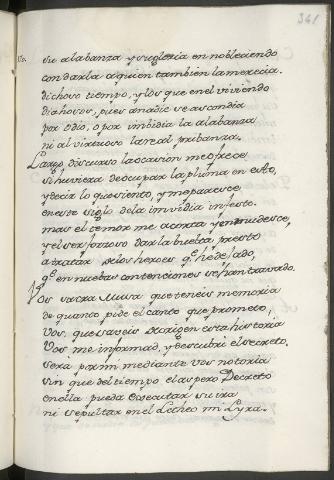 341
Vo. su alabanza y su gloria en nobleciendo
con darla a quien tambien la merecia.
dichoso tiempo, y los que en el viviendo
dichosos, pues a nadie se ascondia
por odio, o por imbidia la alabanza
ni al virtuoso la real pribanza.
Largo discurso la ocasion me ofrece
si huviera de ocupar la pluma en esto,
y decir lo que siento, y me parecce
en este siglo de la imvidia infesto.
mas el temor me acorta y enmudesce,
y el ser forzoso dar la buelta presto
a tratar de los heroes q.e he dejado,
q.e en nuebas contenciones se han travado.
Vos sacra Musa que teneis memoria
de quanto pide el canto que prometo,
Vos, que saveis de origen esta historia
Vos me informad, y descubri el secreto,
sera por mi mediante vos notoria
sin que del tiempo el aspero Decreto
en ella pueda Executar su ira
ni sepultar en el Letheo mi Lyra.